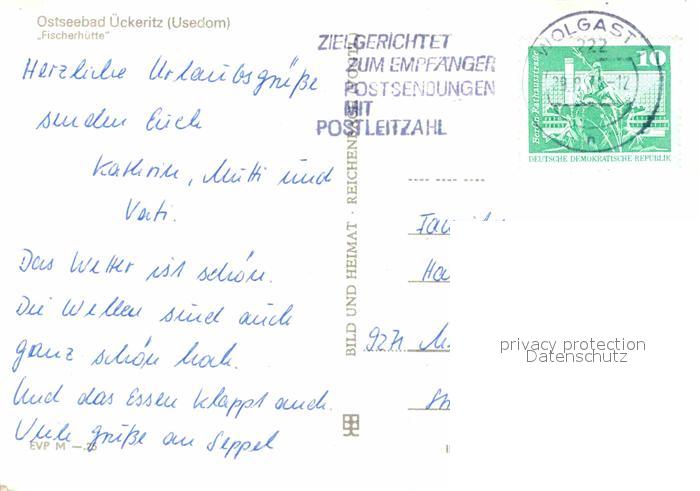 Ostseebad Ückeritz (Usedom)
„Fischerhütte"
Herzliche Urlaubsgrüße
senden Euch
Kathrin, Mutti und
Vati.
Das Wetter ist schön.
Die Wellen sind auch
ganz schön hoch.
Und das Essen klappt auch.
Viele Grüße an Seppel
EVP M —.25
BILD UND HEIMAT · REICHENBACH
ZIELGERICHTET
ZUM EMPFÄNGER
POSTSENDUNGEN
MIT
POSTLEITZAHL
WOLGAST
222
10
Berlin, Rathausstraße
DEUTSCHE DEMOKRATISCHE REPUBLIK
9271
privacy protection
Datenschutz